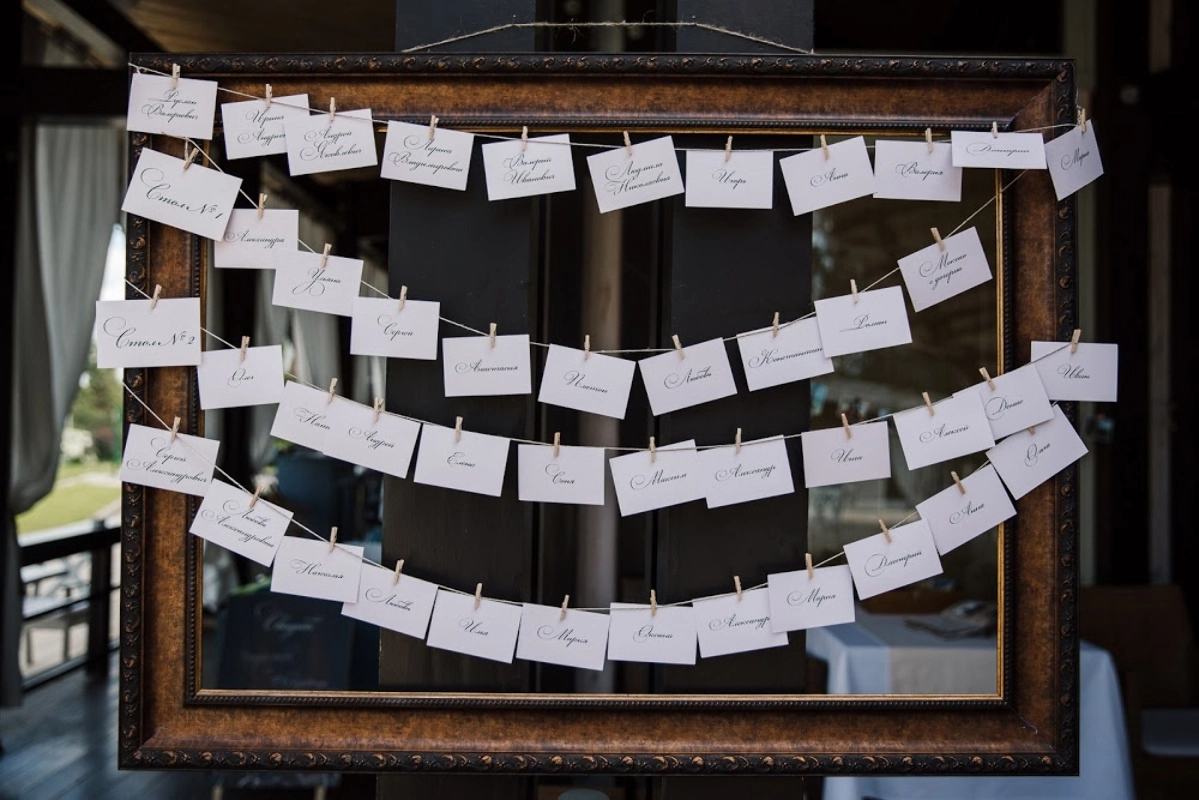 Руслан
Валериевич
Ирина
Андрей
Яковлевич
Лариса
Владимировна
Валерий
Иванович
Людмила
Николаевна
Игорь
Анна
Валерия
Дмитрий
Мария
Стол №1
Александра
Ульяна
Сергей
Анастасия
Платон
Любовь
Константин
Роман
с дочерью
Стол №2
Олег
Андрей
Елена
Соня
Максим
Александр
Инна
Алексей
Денис
Иван
Сергей
Александрович
Любовь
Александровна
Наталия
Любовь
Илья
Мария
Оксана
Александр
Мария
Дмитрий
Анна
Ольга